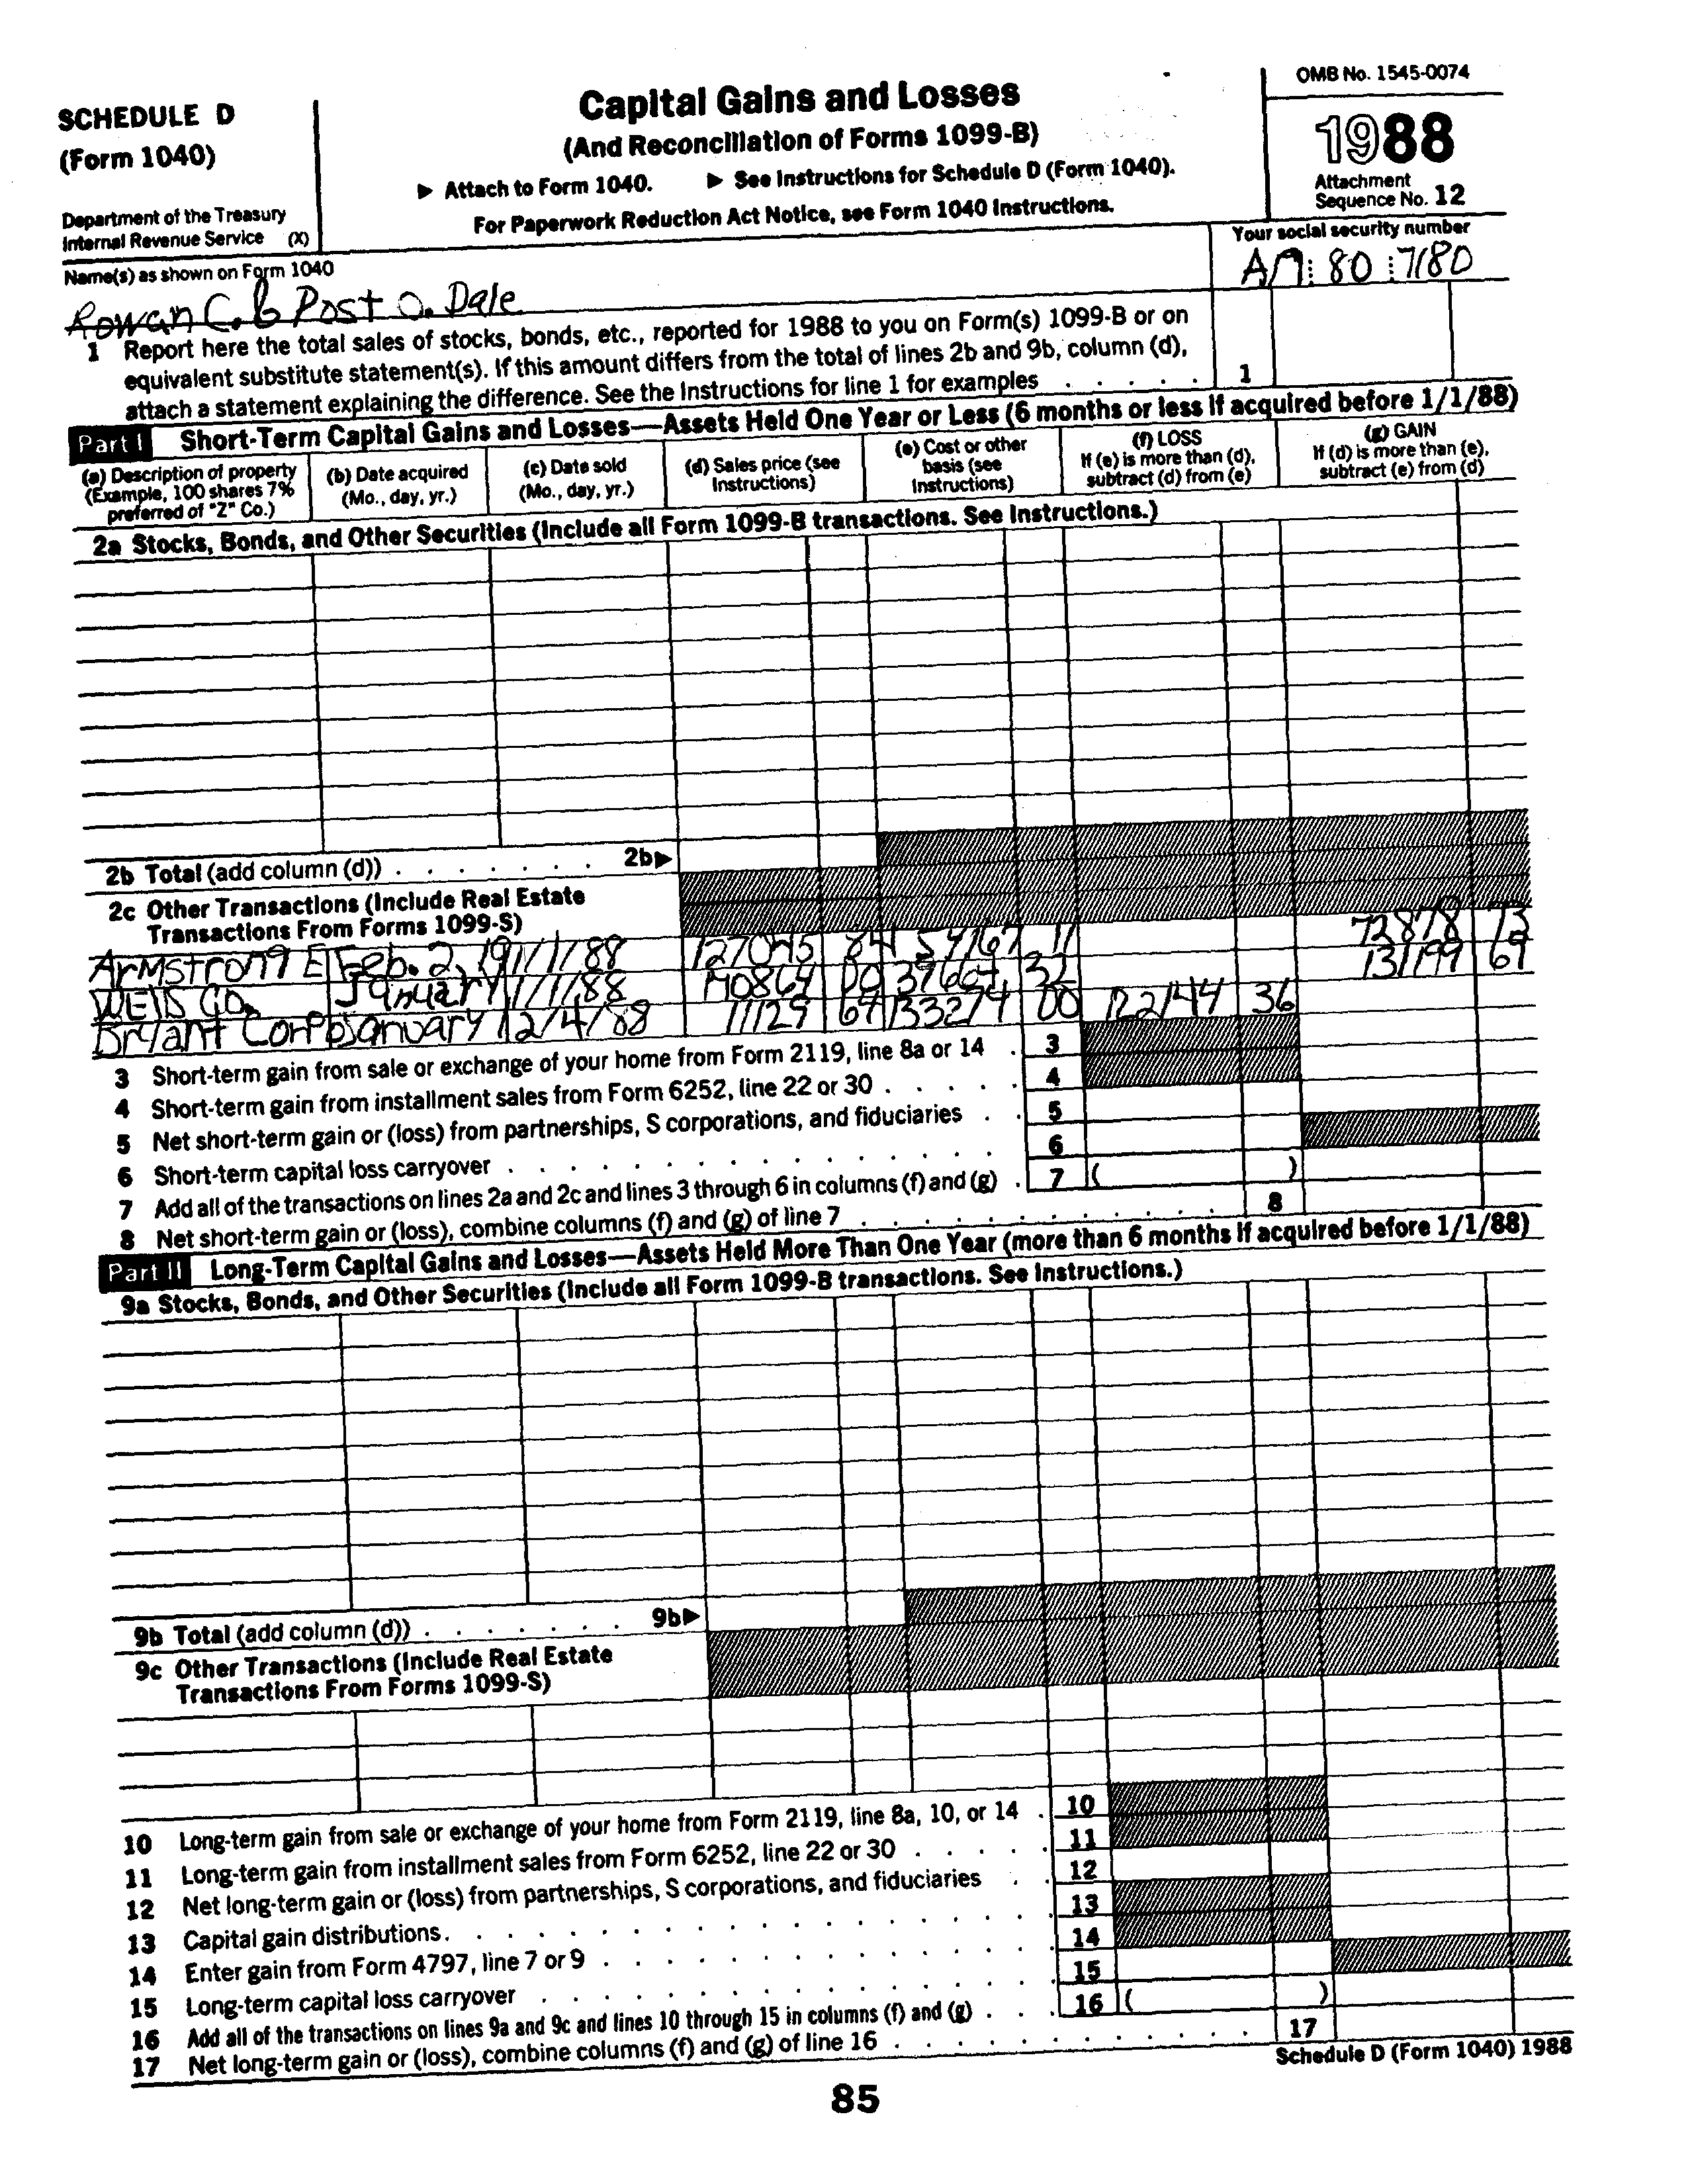 SCHEDULE D
(Form 1040)
Department of the Treasury
Internal Revenue Service (X)
Capital Gains and Losses
(And Reconciliation of Forms 1099-B)
▶ Attach to Form 1040. ▶ See Instructions for Schedule D (Form 1040).
For Paperwork Reduction Act Notice, see Form 1040 Instructions.
OMB No. 1545-0074
1988
Attachment
Sequence No. 12
Name(s) as shown on Form 1040
Rowan C. & Post O. Dale
Your social security number
80 7180
1 Report here the total sales of stocks, bonds, etc., reported for 1988 to you on Form(s) 1099-B or on
equivalent substitute statement(s). If this amount differs from the total of lines 2b and 9b, column (d),
attach a statement explaining the difference. See the Instructions for line 1 for examples . . . . . 1
Part I Short-Term Capital Gains and Losses—Assets Held One Year or Less (6 months or less if acquired before 1/1/88)
(a) Description of property
(Example, 100 shares 7%
preferred of "Z" Co.)
(b) Date acquired
(Mo., day, yr.)
(c) Date sold
(Mo., day, yr.)
(d) Sales price (see
Instructions)
(e) Cost or other
basis (see
Instructions)
(f) LOSS
If (e) is more than (d),
subtract (d) from (e)
(g) GAIN
If (d) is more than (e),
subtract (e) from (d)
2a Stocks, Bonds, and Other Securities (Include all Form 1099-B transactions. See Instructions.)
2b Total (add column (d)) . . . . . . 2b▶
2c Other Transactions (Include Real Estate
Transactions From Forms 1099-S)
Armstrong E Feb. 2, 19 1/1/88 127045 84 54167 11 72878 73
Weis Co. January 1/1/88 32 131199 69
Bryant Corp January 12/4/88 11129 64 133274 00 122144 36
3 Short-term gain from sale or exchange of your home from Form 2119, line 8a or 14 . 3
4 Short-term gain from installment sales from Form 6252, line 22 or 30 . . . . . 4
5 Net short-term gain or (loss) from partnerships, S corporations, and fiduciaries . . 5
6 Short-term capital loss carryover . . . . . . . . . . . . . . . 6
7 Add all of the transactions on lines 2a and 2c and lines 3 through 6 in columns (f) and (g) . 7 ( )
8 Net short-term gain or (loss), combine columns (f) and (g) of line 7 . . . . . . . . . . . . 8
Part II Long-Term Capital Gains and Losses—Assets Held More Than One Year (more than 6 months if acquired before 1/1/88)
9a Stocks, Bonds, and Other Securities (Include all Form 1099-B transactions. See Instructions.)
9b Total (add column (d)) . . . . . . . 9b▶
9c Other Transactions (Include Real Estate
Transactions From Forms 1099-S)
10 Long-term gain from sale or exchange of your home from Form 2119, line 8a, 10, or 14 . 10
11 Long-term gain from installment sales from Form 6252, line 22 or 30 . . . . . 11
12 Net long-term gain or (loss) from partnerships, S corporations, and fiduciaries . . 12
13 Capital gain distributions . . . . . . . . . . . . . . . . . 13
14 Enter gain from Form 4797, line 7 or 9 . . . . . . . . . . . . . 14
15 Long-term capital loss carryover . . . . . . . . . . . . . . . 15
16 Add all of the transactions on lines 9a and 9c and lines 10 through 15 in columns (f) and (g) . . . 16 ( )
17 Net long-term gain or (loss), combine columns (f) and (g) of line 16 . . . . . . . . . . . . 17
Schedule D (Form 1040) 1988
85